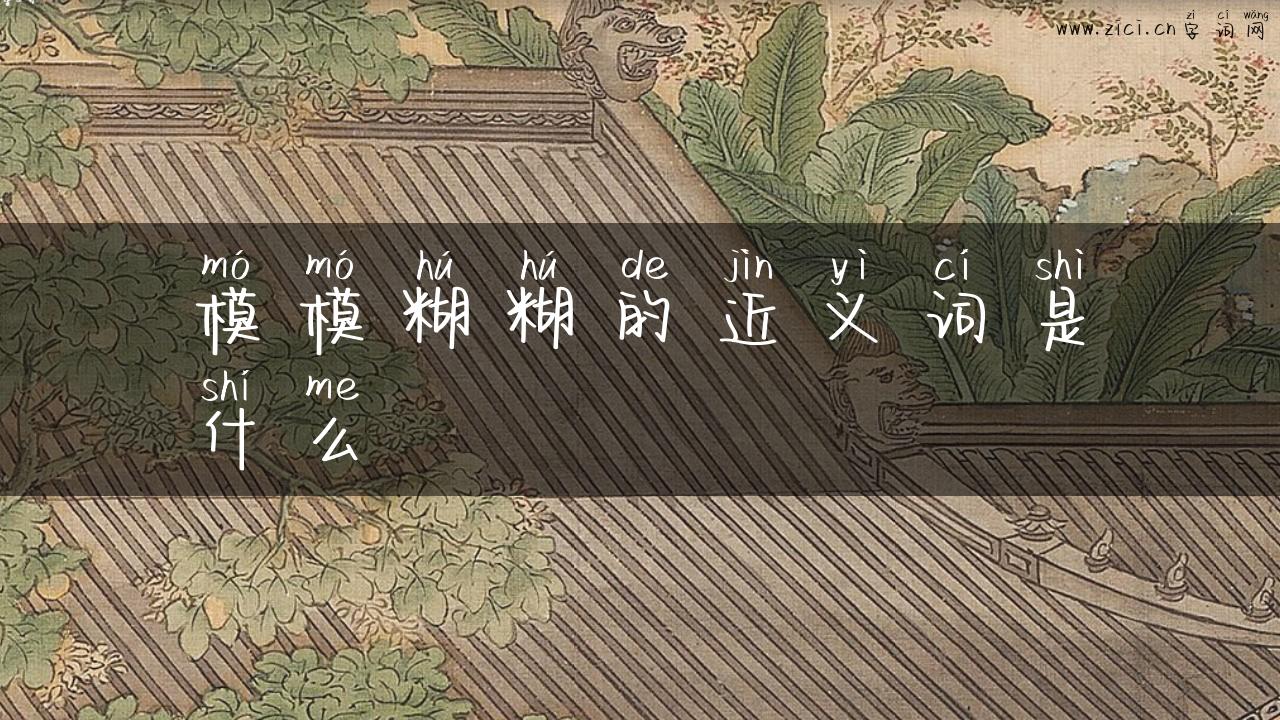 zì cí wǎng
www.zici.cn 字 词 网
mó mó hú hú de jìn yì cí shì
模 模 糊 糊 的 近 义 词 是
shí me
什 么